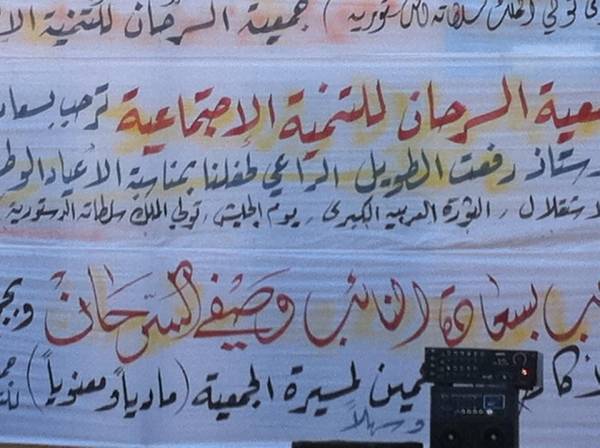 تولي الملك سلطاته الدستورية ) جمعية السرحان للتنمية الا
معية السرحان للتنمية الإجتماعية ترحب بسعاد
ستاذ رفعت الطويل الراعي لحفلنا بمناسبة الأعياد الوط
لاستقلال , الثورة العربية الكبرى , يوم الجيش , تولي الملك سلطاته الدستورية
ب بسعادة النائب وصفي السرحان وبج
مين لمسيرة الجمعية (مادياً ومعنوياً)
وسهلاً